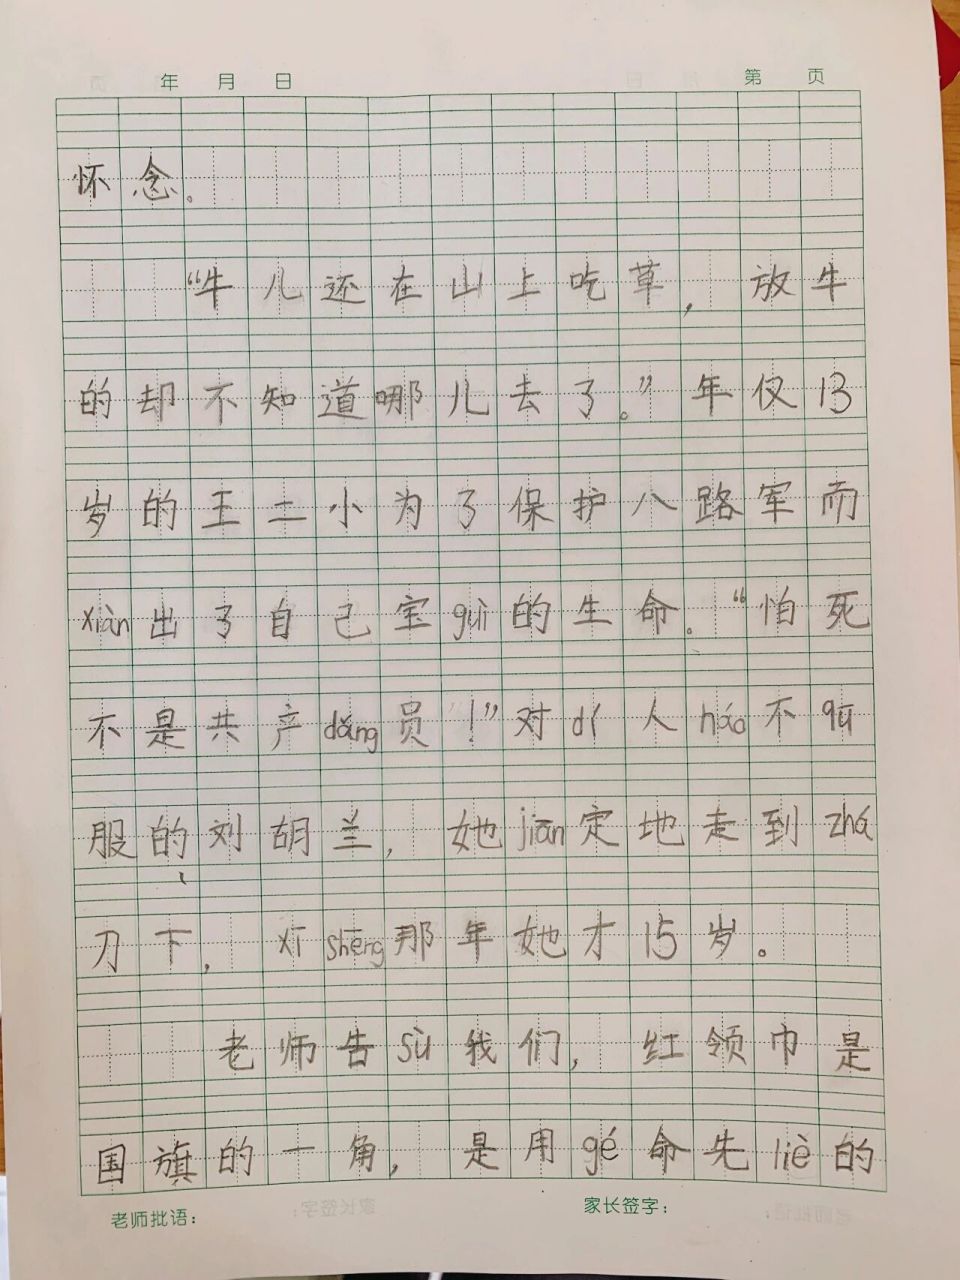 年 月 日 第 页
怀念。
“牛儿还在山上吃草，放牛
的却不知道哪儿去了。”年仅13
岁的王二小为了保护八路军而
xiàn出了自己宝guì的生命。“怕死
不是共产dǎng员！”对dí人háo不qū
服的刘胡兰，她jiān定地走到zhá
刀下，xīshēng那年她才15岁。
老师告sù我们，红领巾是
国旗的一角，是用gé命先liè的
老师批语： 家长签字：